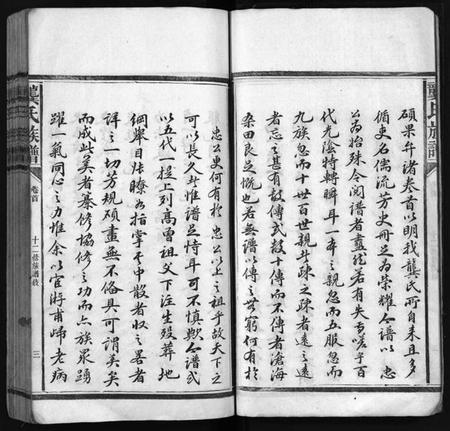 龔氏族譜
碩果弁諸卷首以明我龔氏所自来且多
循吏名儒流芳史冊足為榮耀今譜以忠
公為始殊令閱譜者藍然若有失嗟乎百
代光陰特轉瞬耳一本之親忽而五服忽而
九族忽而十世百世親者疎之疎者遠之遠
者忘之甚有數傳或数十傳而不傳者滄海
桑田良足慨也若無譜以傳之世窮何有於
忠公更何有於忠公以上之祖乎故天下之
可以長久者惟譜足恃耳可不慎歟今譜式
以五代一提上列高曾祖父下注生殁葬地
綱舉目張瞭如指掌其中散者收之畧者
詳之一切芳規碩畫無不俗具可謂美矣
而成此美者纂修協修之功而点族衆踴
躍一氣同心之力惟余以宦游甫歸老病
龔氏族譜
卷首
十二修族譜敘
三